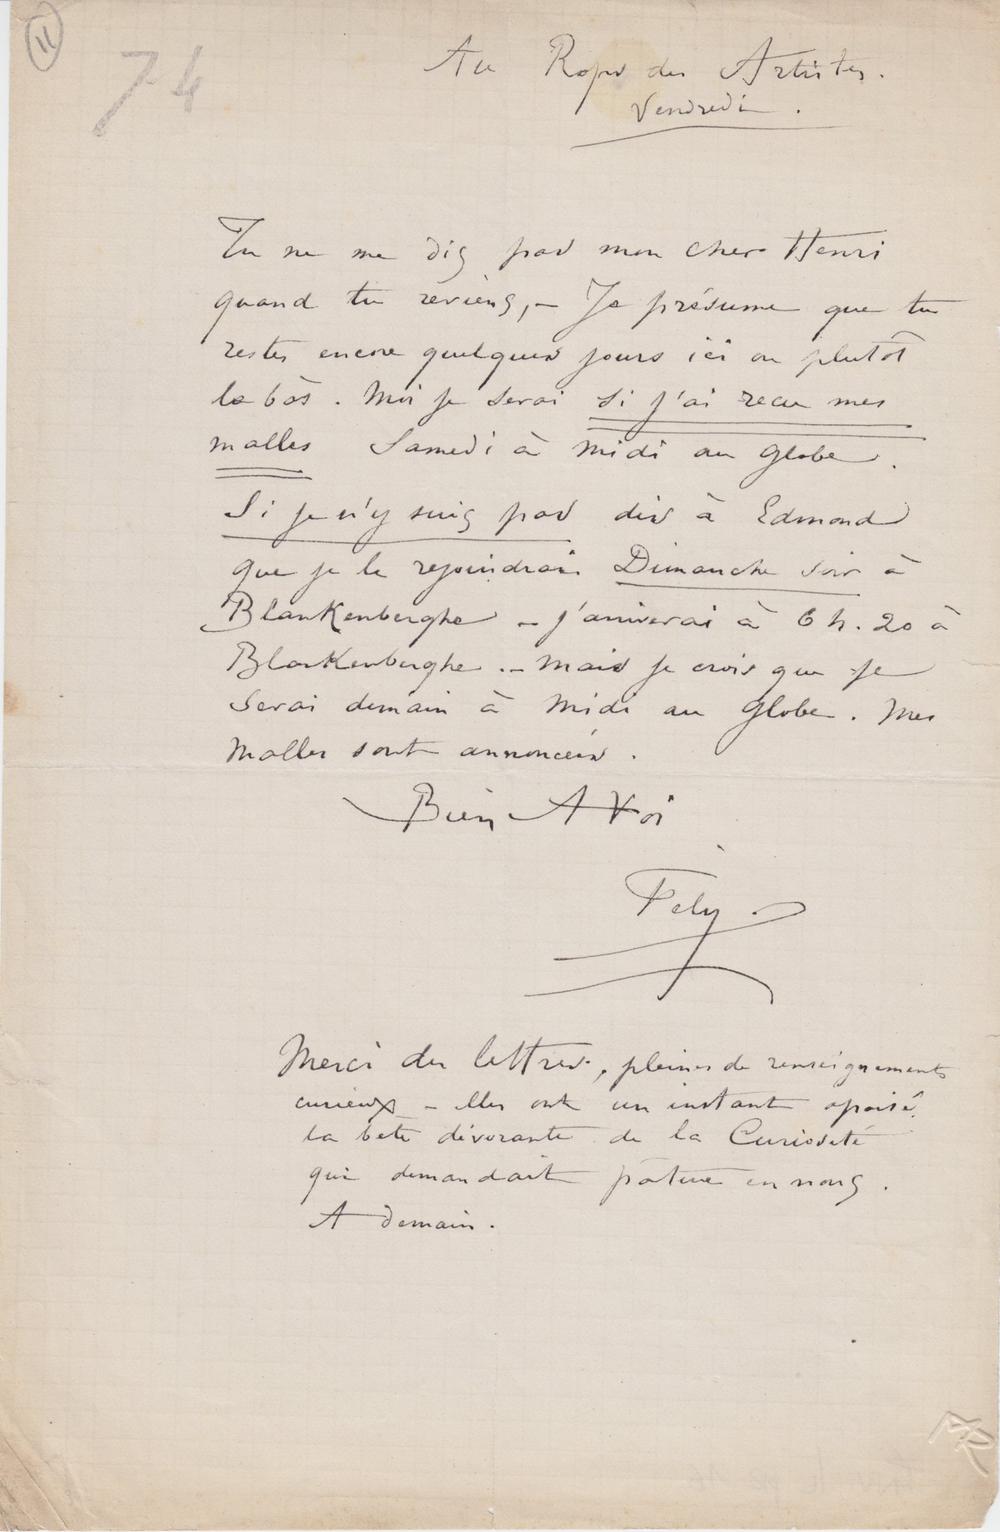 11
74
Au Repos des Artistes.
Vendredi.
Tu ne me dis pas mon cher Henri
quand tu reviens, – Je présume que tu
restes encore quelques jours ici ou plutôt
là bàs. Moi je serai si j'ai recu mes
malles Samedi à midi au Globe.
Si je n'y suis pas dis à Edmond
que je le rejoindrai Dimanche soir à
Blankenberghe – j'arriverai à 6 h. 20 à
Blankenberghe. – Mais je crois que je
serai demain à Midi au Globe. Mes
Malles sont annoncées.
Bien A Toi
Fély.
Merci des lettres, pleines de renseignements
curieux – elles ont un instant apaisé
la bete dévorante de la Curiosité
qui demandait pâture en nous.
A demain.
AR